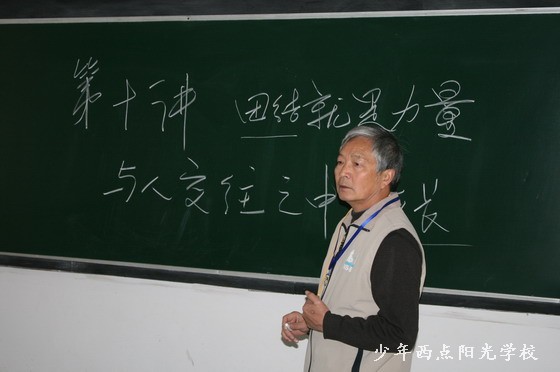 第十讲 团结就是力量
与人交往之中 长
少年西点阳光学校